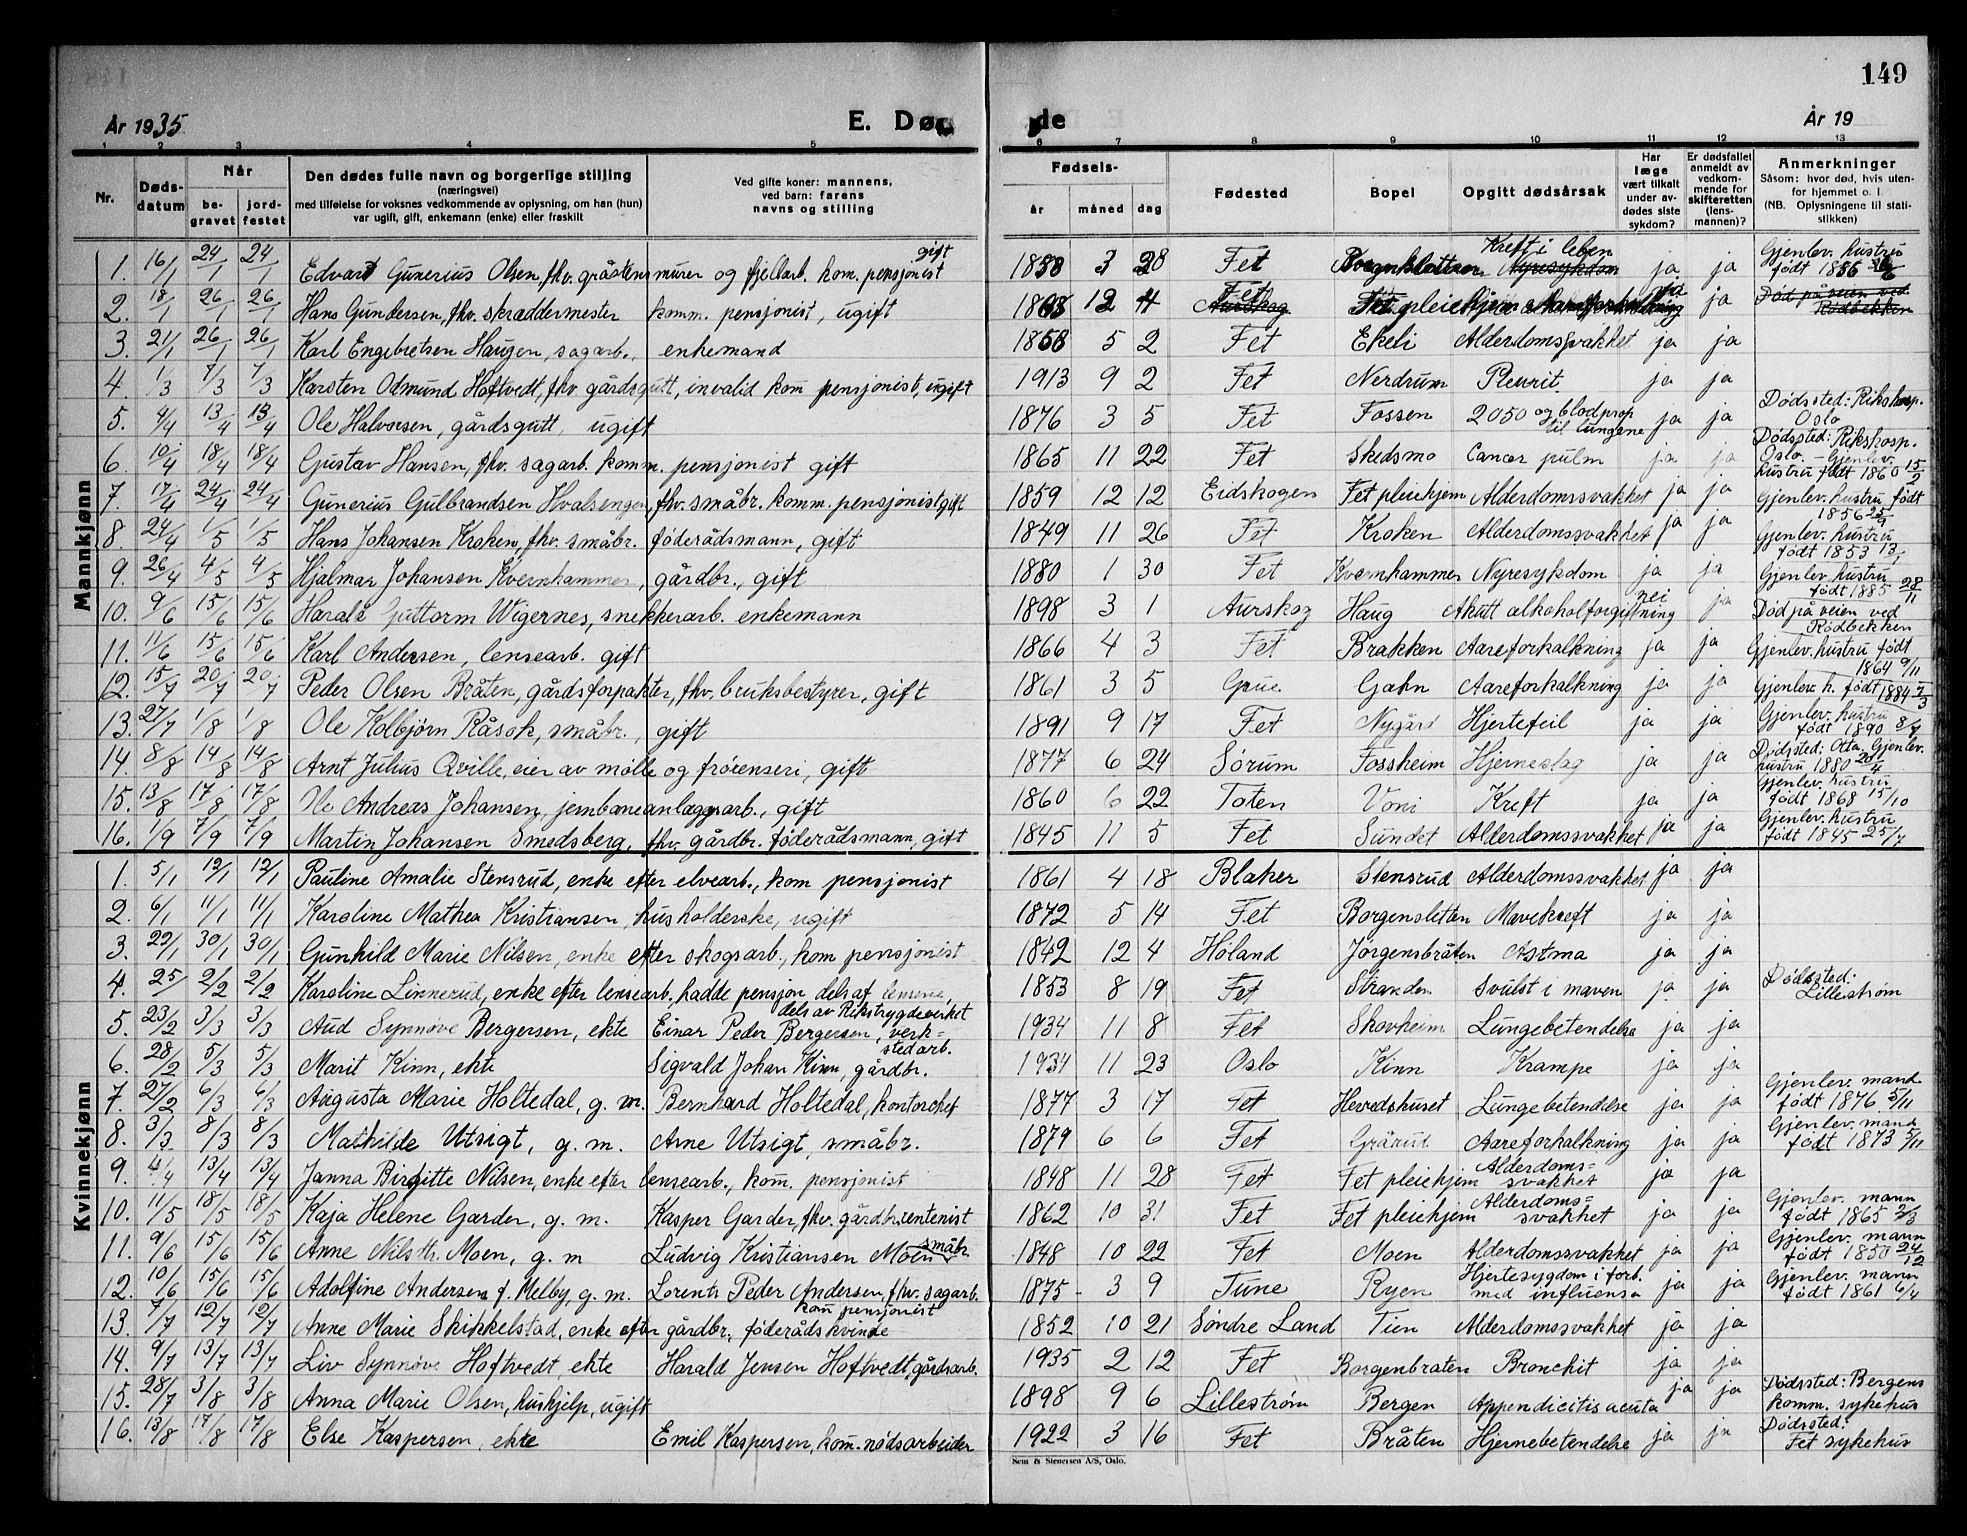 149
År 1935 E. Døde År 19
1 2 3 4 5 6 7 8 9 10 11 12 13
Nr. Dødsdatum Når begravet jordfestet Den dødes fulle navn og borgerlige stilling (næringsvei) med tilføielse for voksnes vedkommende av oplysning, om han (hun) var ugift, gift, enkemann (enke) eller fraskilt Ved gifte koner: mannens, ved barn: farens navns og stilling Fødsels- år måned dag Fødested Bopel Opgitt dødsårsak Har læge vært tilkalt under avdødes siste sykdom? Er dødsfallet anmeldt av vedkommende for skifteretten (lensmannen)? Anmerkninger Såsom: hvor død, hvis utenfor hjemmet o. l. (NB. Oplysningene til statistikken)
Mannkjønn
1. 16/1 24/1 24/1 Edvard Gunerius Olsen, fhv. gråstensmurer og fjellarb. kom. pensjonist gift 1858 3 28 Fet Kreft i leben Nyresykdom ja ja Gjenlev. hustru født 1856
2. 18/1 26/1 26/1 Hans Gundersen, fhv. skreddermester komm. pensjonist, ugift 12 4 Fet Aurskog Fet pleiehjem Aareforkalkning ja ja Død på veien ved Rødbekken
3. 21/1 26/1 26/1 Karl Engebretsen Haugen, sagarb., enkemand 1858 5 2 Fet Ekeli Alderdomssvakhet ja ja
4. 1/3 7/3 7/3 Karsten Odmund Hoftvedt, fhv. gårdsgutt, invalid kom pensjonist, ugift 1913 9 2 Fet Nerdrum Pleurit ja ja
5. 4/4 13/4 13/4 Ole Halvorsen, gårdsgutt, ugift 1876 3 5 Fet Fossen 2050 og blodprop til lungene ja ja Dødssted: Rikshosp. Oslo
6. 10/4 18/4 18/4 Gustav Hansen, fhv. sagarb. komm. pensjonist gift 1865 11 22 Fet Skedsmo Cancer pulm ja ja Dødssted: Rikshosp. Oslo – Gjenlev. hustru født 1860 15/2
7. 17/4 24/4 24/4 Gunerius Gulbrandsen Hvalsengen, fhv. småbr. komm. pensjonist gift 1859 12 12 Eidskogen Fet pleiehjem Alderdomssvakhet ja ja Gjenlev. hustru født 1856 25/9
8. 24/4 1/5 1/5 Hans Johansen Kroken, fhv. småbr. føderådsmann, gift 1849 11 26 Fet Kroken Alderdomssvakhet ja ja Gjenlev. hustru født 1853 13/1
9. 26/4 4/5 4/5 Hjalmar Johansen Kvernhammer, gårdbr., gift 1880 1 30 Fet Kvernhammer Nyresykdom ja ja Gjenlev. hustru født 1885 28/11
10. 9/6 15/6 15/6 Harald Guttorm Wigernes, snekkerarb. enkemann 1898 3 1 Aurskog Haug Akutt alkoholforgiftning nei ja Død på veien ved Rødbekken
11. 11/6 15/6 15/6 Karl Andersen, lensearb. gift 1866 4 3 Fet Brakken Aareforkalkning ja ja Gjenlev. hustru født 1864 9/11
12. 15/7 20/7 20/7 Peder Olsen Bråten, gårdsforpakter, fhv. bruksbestyrer, gift 1861 3 5 Grue Gahn Aareforkalkning ja ja Gjenlev. h. født 1884 7/3
13. 27/7 1/8 1/8 Ole Kolbjørn Råsok, småbr., gift 1891 9 17 Fet Nygård Hjertefeil ja ja Gjenlev. hustru født 1890
14. 8/8 14/8 14/8 Arnt Julius Qville, eier av mølle og frørenseri, gift 1877 6 24 Sørum Fossheim Hjerneslag ja ja Dødssted: Otta. Gjenlev. hustru 1880 20/4
15. 13/8 17/8 17/8 Ole Andreas Johansen, jernbaneanleggsarb., gift 1860 6 22 Toten Voni Kreft ja ja Gjenlev. hustru født 1868 15/10
16. 1/9 7/9 7/9 Martin Johansen Smedsberg, fhv. gårdbr. føderådsmann, gift 1845 11 5 Fet Sundet Alderdomssvakhet ja ja Gjenlev. hustru født 1845 25/7
Kvinnekjønn
1. 5/1 12/1 12/1 Pauline Amalie Stensrud, enke efter elvearb., kom pensjonist 1861 4 18 Blaker Stensrud Alderdomssvakhet ja ja
2. 6/1 11/1 11/1 Karoline Mathea Kristiansen, husholderske, ugift 1872 5 14 Fet Borgensletten Mavekreft ja ja
3. 22/1 30/1 30/1 Gunhild Marie Nilsen, enke efter skogsarb., kom pensjonist 1842 12 4 Høland Jørgensbråten Astma ja ja
4. 25/ 2/2 2/2 Karoline Linnerud, enke efter lensearb. hadde pensjon dels af lensene, dels av Rikstrygdeverket 1853 8 19 Fet Stranden Svulst i maven ja ja Dødssted: Lillestrøm
5. 23/2 3/3 3/3 Aud Synnøve Bergersen, ekte Einar Peder Bergersen, verkstedarb. 1934 11 8 Fet Skovheim Lungebetendelse ja ja
6. 28/2 5/3 5/3 Marit Kinn, ekte Sigvald Johan Kinn, gårdbr. 1934 11 23 Oslo Kinn Krampe ja ja
7. 27/2 6/3 6/3 Augusta Marie Holtedal, g. m. Bernhard Holtedal, kontorchef 1877 3 17 Fet Hovedshuset Lungebetendelse ja ja Gjenlev. mand født 1876 5/11
8. 3/3 8/3 8/3 Mathilde Utsigt, g. m. Arne Utsigt, småbr. 1879 6 6 Fet Grårud Aareforkalkning ja ja Gjenlev. mand født 1873 5/11
9. 4/4 13/4 13/4 Janna Birgitte Nilsen, enke efter lensearb., kom. pensjonist 1848 11 28 Fet Fet pleiehjem Alderdomssvakhet ja ja
10. 11/5 18/5 18/5 Kaja Helene Garder, g. m. Kasper Garder, fhv. gårdbr. rentenist 1862 10 31 Fet Fet pleiehjem Alderdomssvakhet ja ja Gjenlev. mann født 1865 2/3
11. 9/6 15/6 15/6 Anne Nilsdtr. Moen, g. m Ludvig Kristiansen Moen småbr. 1848 10 22 Fet Moen Alderdomssvakhet ja ja Gjenlev. mann født 1850 24/12
12. 10/6 15/6 15/6 Adolfine Andersen f. Melby, g. m. Lorents Peder Andersen, fhv. sagarb. kom pensjonist 1875 3 9 Tune Ryen Hjertesygdom i forb. med influensa ja ja Gjenlev. mann født 1861 6/4
13. 7/7 12/7 12/7 Anne Marie Skikkelstad, enke efter gårdbr., føderådskvinde 1852 10 21 Søndre Land Tien Alderdomssvakhet ja ja
14. 9/7 13/7 13/7 Liv Synnøve Hoftvedt, ekte Harald Jensen Hoftvedt, gårdsarb. 1935 2 12 Fet Borgenbråten Bronchit ja ja
15. 28/7 3/8 3/8 Anna Marie Olsen, hushjelp, ugift 1898 9 6 Lillestrøm Bergen Appendicitis acuta ja ja Dødssted: Bergens komm. sykehus
16. 13/8 17/8 17/8 Else Kaspersen, ekte Emil Kaspersen, kom. nødsarbeider 1922 3 16 Fet Bråten Hjernebetendelse ja ja Dødssted: Fet sykehus
Sem & Stenersen A/S, Oslo.